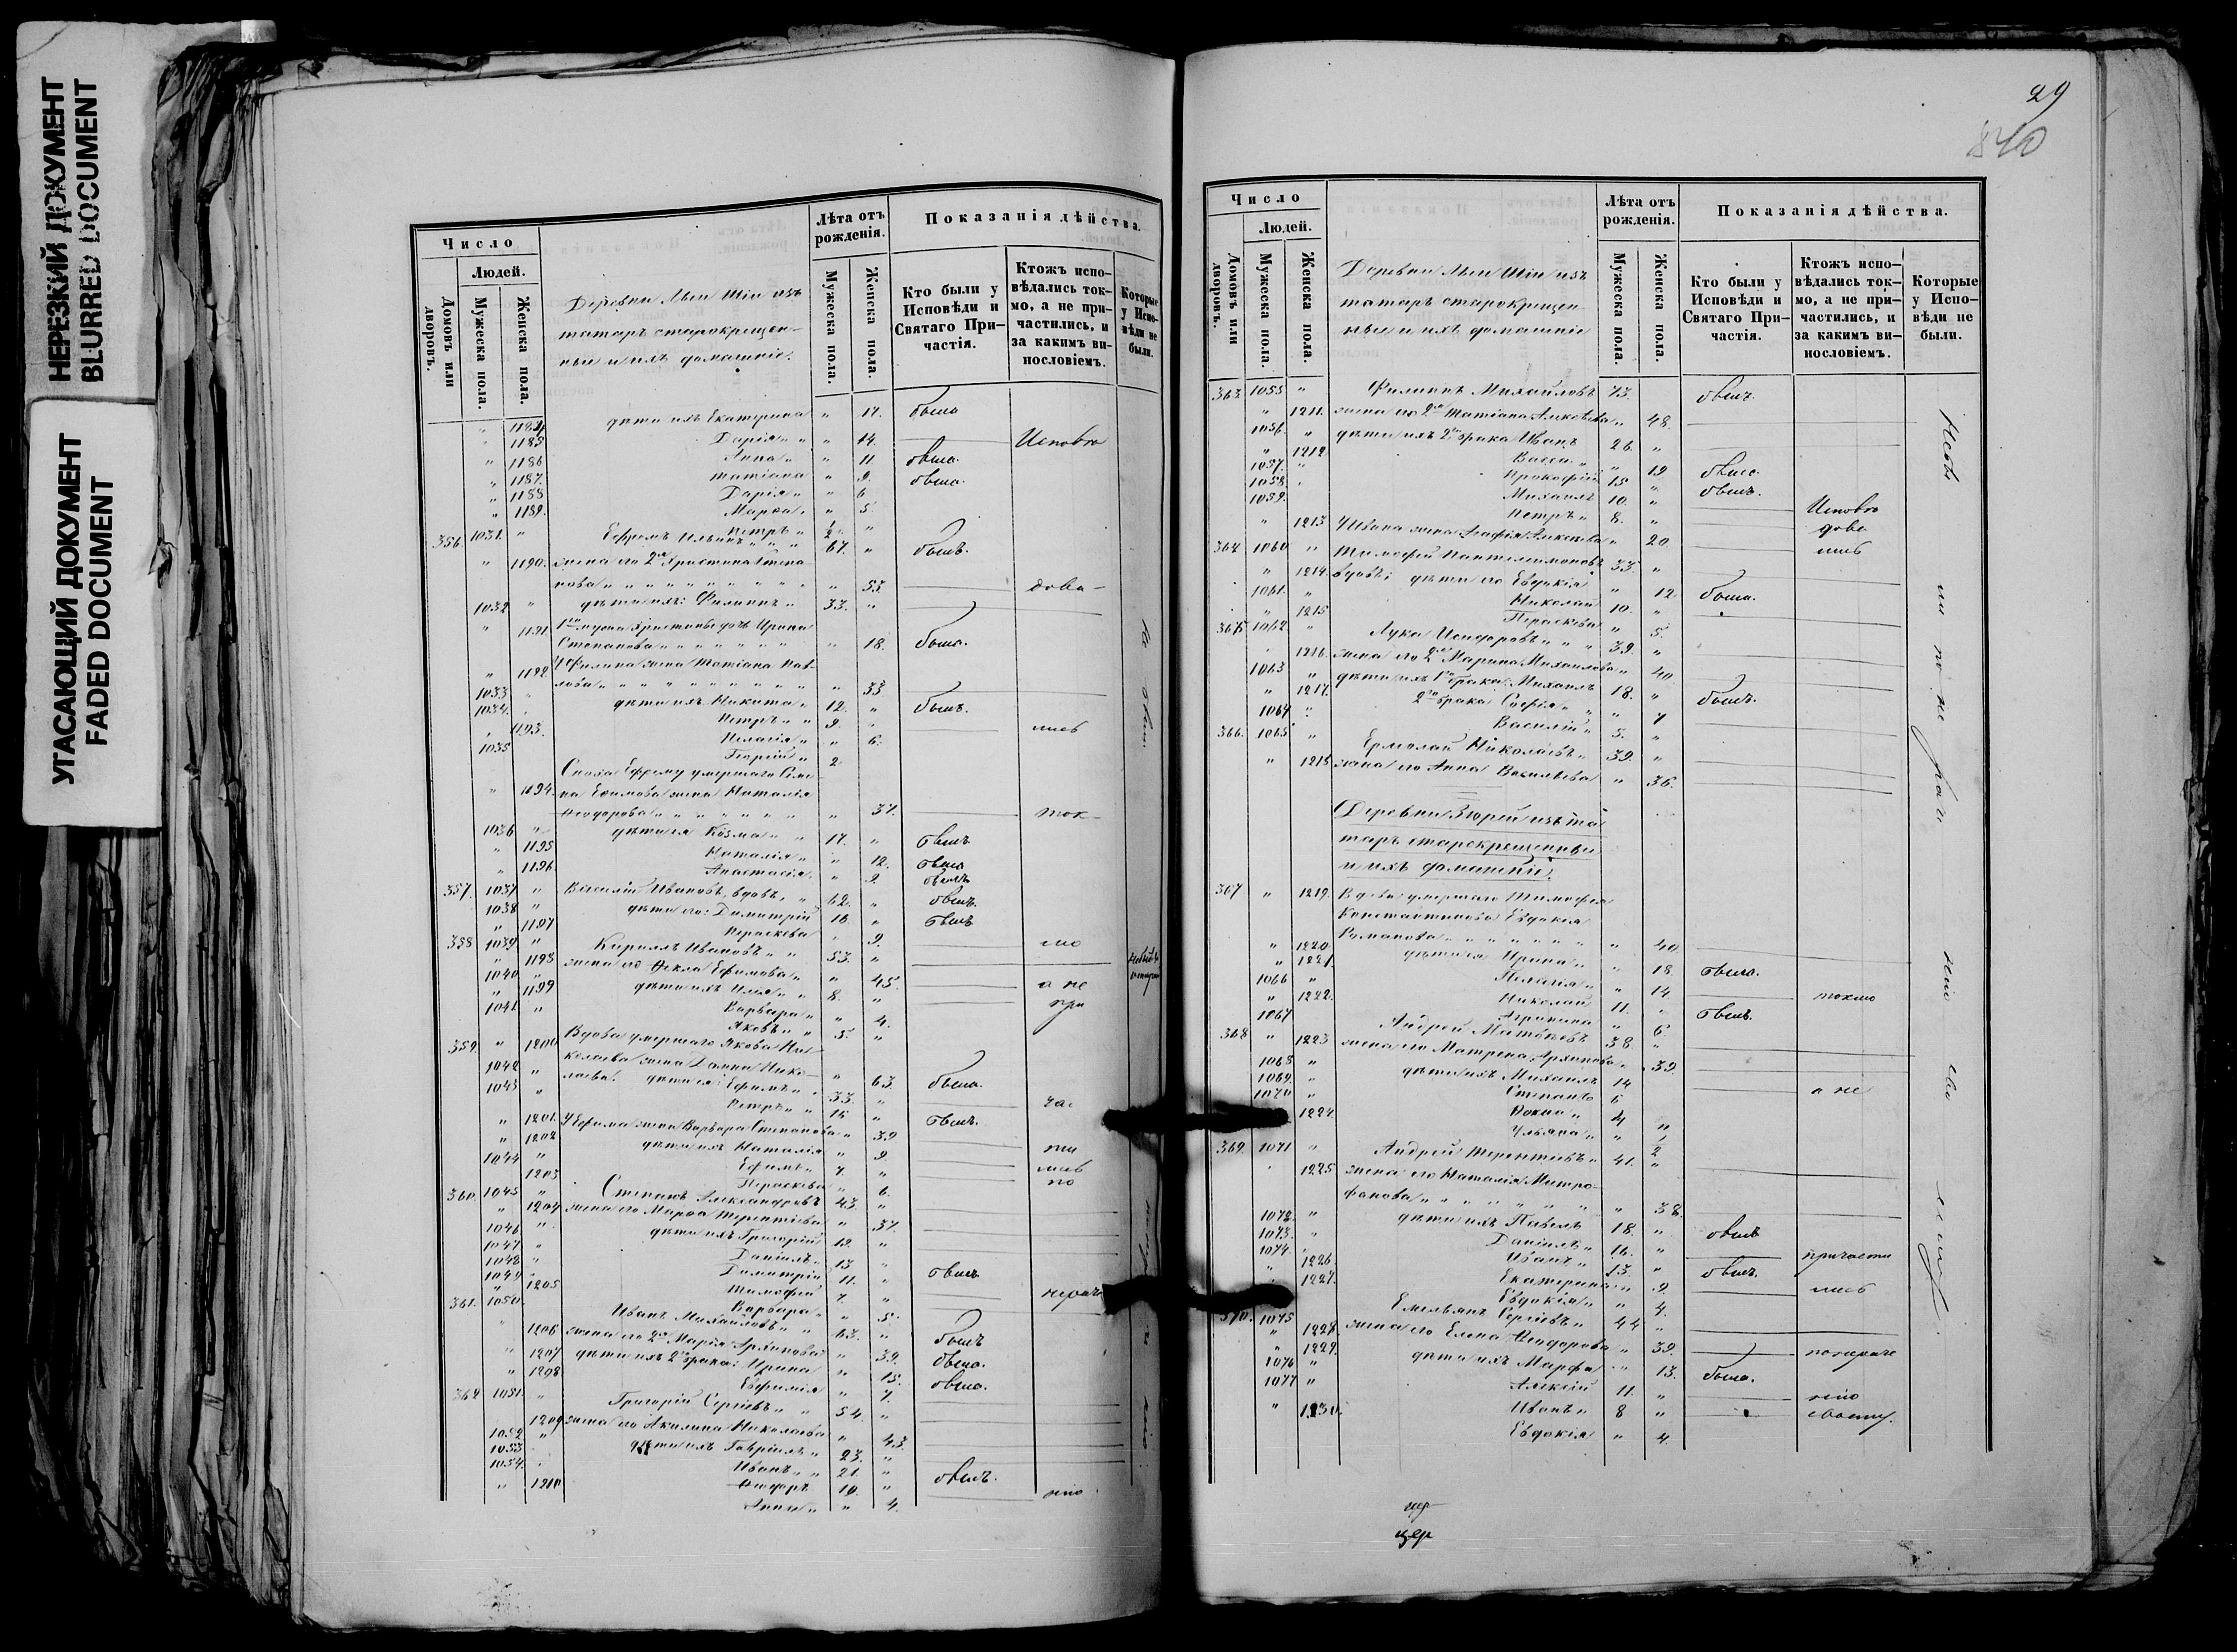 НЕРЕЗКИЙ ДОКУМЕНТ
BLURRED DOCUMENT
УГАСАЮЩИЙ ДОКУМЕНТ
FADED DOCUMENT
Число
Людей.
Домовъ или дворовъ.
Мужеска пола.
Женска пола.
татаръ старокрещен-
ныи и ихъ домашніе.
Лѣта отъ рожденія.
Мужеска пола.
Женска пола.
Показанія дѣйства.
Кто были у Исповѣди и Святаго При-частія.
Ктожъ испо-вѣдались ток-мо, а не при-частились, и за какимъ ви-нословіемъ.
Которые у Испо-вѣди не были.
дѣти ихъ Екатерина " 17. была
" 1185 Дарія " " 14. Исповѣ
" 1186 Анна " " 11. была.
" 1187. Татіана " 9. была.
" 1188 Дарія " " 6
" 1189. Марѳа " " 5.
Петръ " ½ "
356 1031. " Ефремъ Ильинъ " 67. " былъ.
" 1190. жена его 2я Христина Степа
нова " " 53 дова-
1032 " дѣти ихъ: Филиппъ " 33. "
" 1191. Ирина
Степанова " " 18. была.
" 1192 У Филипа жена Татіана Пав-
лова " " 33
1033 " дѣти ихъ Никита " 12. " былъ.
1034. " Петръ " 9. " лись
" 1193. Пелагія " " 6.
1035 Георгій " 2
" 1094. жена Наталія
Ѳеодорова " " 37. ток-
1036 " дѣти ея Козма " 17. " былъ
" 1195 Наталія " " 12. была
" 1196 Анастасія " 9.
357. 1037 " Василій Ивановъ, вдовъ, " 62. " былъ.
1038 " дѣти его: Димитрій 18 " былъ
" 1197 Параскева " 9.
358 1039 " Кириллъ Ивановъ " 53. " мо
" 1198 жена его Ѳекла Ефимова " " 45.
1040 " дѣти ихъ Илья " 8. " а не
" 1199 Варвара " " 4. при
1041 " Яковъ " 5. "
359. " 1200 Вдова умершаго Якова Ни-
колаева жена Домна Нико-
1042 " лаева. дѣти ея: Ефимъ " 63. была.
1043 " Петръ " 33. " ча-
" 1201. У Ефима жена Варвара Степанова " 39 былъ.
" 1202 дѣти ихъ Наталія " 9
1044 " Ефимъ " 7. " лись
1203 Параскева " 6. по
360. 1045 " Степанъ Александровъ 43. "
" 1204 жена его Марѳа Терентіева " 37.
1046 " дѣти ихъ Григорій 19. "
1047 " Даніилъ " 13 "
1048 " Димитрій 11. " былъ
1049 " Тимофей 7. "
" 1205 Варвара " " 5.
361. 1050. Иванъ Михайловъ " 63. " былъ
" 1206 жена его 2я Марія Архипова " 39. была.
" 1207 дѣти ихъ 2го брака: Ирина " 15. была.
" 1208 Евфимія " 7.
362 1051. " Григорій Сергіевъ " 54. "
1209 жена его Акилина Николаева " 43.
1052 " дѣти ихъ Гавріилъ " 23. "
1053 " Иванъ " 21. "
1054. " Ѳеодоръ 10. " былъ.
" 1210 Анна " " 4.
29
840
Число
Людей.
Домовъ или дворовъ.
Мужеска пола.
Женска пола.
татаръ старокрещен
ныи и ихъ домашніе
Лѣта отъ рожденія.
Мужеска пола.
Женска пола.
Показанія дѣйства.
Кто были у Исповѣди и Святаго При-частія.
Ктожъ испо-вѣдались ток-мо, а не при-частились, и за какимъ ви-нословіемъ.
Которые у Испо-вѣди не были.
363 1055 " Филиппъ Михайловъ 73. былъ.
" 1211. жена его 2я Татіана Алексѣева " 48.
1056. " дѣти ихъ 2го брака Иванъ 26. "
" 1212 Васса " " 19 была.
1057. " Прокофій 15 " былъ.
1058. " Михаилъ 10. " Исповѣ
1059. Петръ " 8. " дова
" 1213 У Ивана жена Агафія Алексѣева " 20. лись
364 1060 " Тимофей Пантелеимоновъ 33. "
" 1214. вдовъ; дѣти его Евдокія " 12. была.
1061. " Николай 10. "
" 1215 Параскева " 5.
365 1062 " Лука Исидоровъ " 39. "
" 1216. жена его 2я Марина Михайлова " 40
1063 " дѣти ихъ 1го брака: Михаилъ 18. " былъ.
" 1217. 2го брака Софія " " 7
1064 " Василій " 5. "
366. 1065 " Ермолай Николаевъ " 39. "
" 1218 жена его Анна Васильева " 36.
Деревни Зюрей изъ та
таръ старокрещенныи
и ихъ домашніе.
367 " 1219. Вдова умершаго Тимофея
Константинова Евдокія
Романова " " 40
" 1220 дѣти ея Ирина " " 18 была.
" 1221. Пелагія " " 14. токмо
1066 " Николай 11. " былъ.
" 1222. Агрипина " 6
1067 Андрей Матвѣевъ 38. "
368 " 1223 жена его Матрена Архипова " 39.
1068 " дѣти ихъ Михаилъ 14
1069. " Степанъ 6 а не
1070 " 4 "
1224. Ульяна " " 2
369. 1071 " Андрей Терентіевъ " 41. "
1225 жена его Наталія Митро-
фанова " " 38.
1072. " дѣти ихъ Павелъ 18. " былъ
1073. " Даніилъ " 16. " причасти
1074. " Иванъ " 13. " былъ.
" 1226. Екатерина " 9. лись
" 1227. Евдокія " " 4.
370. 1075 Емельянъ Сергіевъ " 44 "
" 1228. жена его Елена Ѳеодорова " 39.
" 1229. дѣти ихъ Марфа " 13. была.
1076 " Алексій 11. "
1077 " Иванъ " 8 "
" 1230. Евдокія " 4.